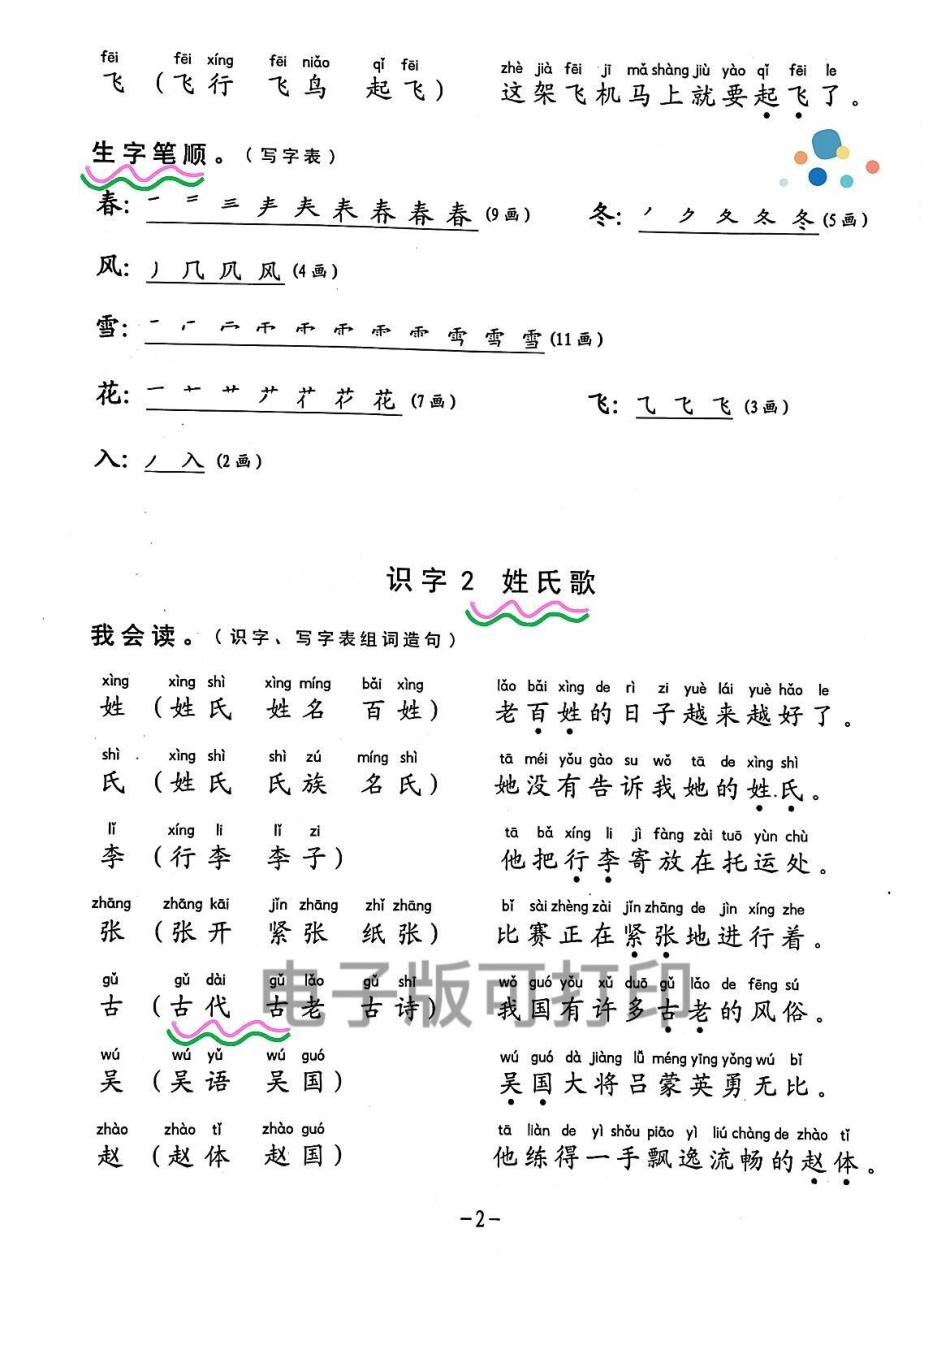 fēi fēi xíng fēi niǎo qǐ fēi
飞 （飞行 飞鸟 起飞）
zhè jià fēi jī mǎ shàng jiù yào qǐ fēi le
这架飞机马上就要起飞了。
生字笔顺。（写字表）
春: 一 二 三 𡗗 夫 𡗗 春 春 春 (9画)
冬: 丿 ク 夂 冬 冬 (5画)
风: 丿 几 凤 风 (4画)
雪: (11画)
花: 一 十 艹 花 (7画)
飞: 乁 飞 飞 (3画)
入: 丿 入 (2画)
识字2 姓氏歌
我会读。（识字、写字表组词造句）
xìng xìng shì xìng míng bǎi xìng
姓 （姓氏 姓名 百姓）
lǎo bǎi xìng de rì zi yuè lái yuè hǎo le
老百姓的日子越来越好了。
shì xìng shì shì zú míng shì
氏 （姓氏 氏族 名氏）
tā méi yǒu gào su wǒ tā de xìng shì
她没有告诉我她的姓氏。
lǐ xíng li lǐ zi
李 （行李 李子）
tā bǎ xíng li jì fàng zài tuō yùn chù
他把行李寄放在托运处。
zhāng zhāng kāi jǐn zhāng zhǐ zhāng
张 （张开 紧张 纸张）
bǐ sài zhèng zài jǐn zhāng de jìn xíng zhe
比赛正在紧张地进行着。
gǔ gǔ dài gǔ lǎo gǔ shī
古 （古代 古老 古诗）
wǒ guó yǒu xǔ duō gǔ lǎo de fēng sú
我国有许多古老的风俗。
电子版可打印
wú wú yǔ wú guó
吴 （吴语 吴国）
wú guó dà jiàng lǚ méng yīng yǒng wú bǐ
吴国大将吕蒙英勇无比。
zhào zhào tǐ zhào guó
赵 （赵体 赵国）
tā liàn de yì shǒu piāo yì liú chàng de zhào tǐ
他练得一手飘逸流畅的赵体。
-2-